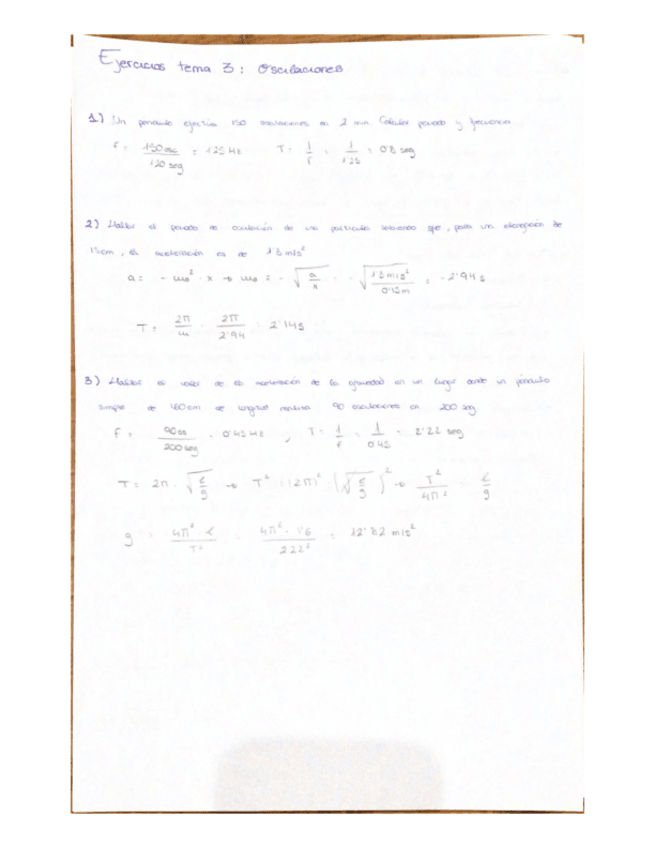 Ejercicios tema 3: Oscilaciones
1) Un péndulo ejecuta 150 oscilaciones en 2 min. Calcular periodo y frecuencia
f = 150 osc / 120 seg = 1'25 Hz T = 1/f = 1/1'25 = 0'8 seg
2) Hallar el periodo de oscilación de una partícula sabiendo que, para una elongación de
15cm, la aceleración es de 1'3 m/s²
a = - ω₀² · x → ω₀ = - √(a/x) = - √(1'3 m/s² / 0'15m) = -2'94 s
T = 2π/ω = 2π/2'94 = 2'14s
3) Hallar el valor de la aceleración de la gravedad en un lugar donde un péndulo
simple de 160cm de longitud realiza 90 oscilaciones en 200 seg
f = 90 osc / 200 seg = 0'45 Hz , T = 1/f = 1/0'45 = 2'22 seg
T = 2π · √(L/g) → T² = (2π)² · (√(L/g))² → T²/4π² = L/g
g = 4π² · L / T² = 4π² · 1'6 / 2'22² = 12'82 m/s²